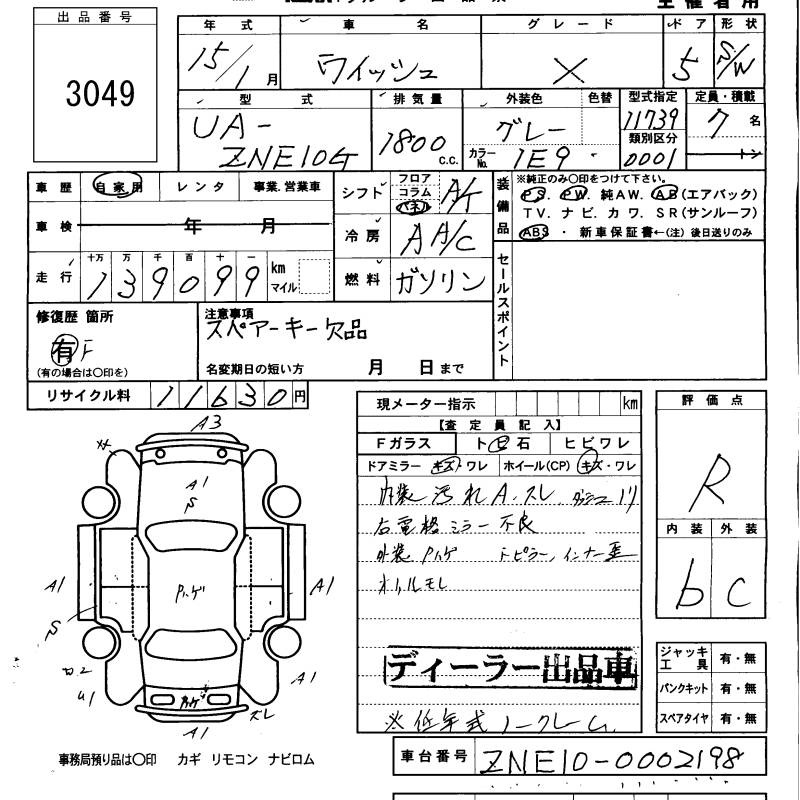 出品番号
3049
年式 車名 グレード ドア 形状
15/1月 ウィッシュ × 5 S/W
型式 排気量 外装色 色替 型式指定 定員・積載
UA-ZNE10G 1800c.c. グレー 11739 7名
カラーNo. 1E9 類別区分 0001 トン
車歴 自家用 レンタ 事業.営業車
シフト フロア コラム パネル A/T
装備品
※純正のみ○印をつけて下さい。
PS. PW. 純AW. AB(エアバック)
TV. ナビ. カワ. SR(サンルーフ)
ABS ・ 新車保証書←(注) 後日送りのみ
車検 年 月
冷房 A A/C
走行 十万 万 千 百 十 一
139099 km マイル
燃料 ガソリン
セールスポイント
修復歴 箇所
有 F
(有の場合は○印を)
注意事項
スペアーキー欠品
名変期日の短い方 月 日まで
リサイクル料 11630円
現メーター指示 km
【査定員記入】
Fガラス ト ビ 石 ヒビワレ
ドアミラー キズ・ワレ ホイール(CP) キズ・ワレ
内装 汚れ A.スレ
右電格ミラー不良
外装 Pハゲ
オイルモレ
ディーラー出品車
※低年式ノークレーム.
評価点
R
内装 外装
b C
ジャッキ工具 有・無
パンクキット 有・無
スペアタイヤ 有・無
A3
A1
S
A1
Pハゲ
A1
S
A1
U1
Pハゲ
ズレ
A1
事務局預り品は○印 カギ リモコン ナビロム
車台番号 ZNE10-0002198